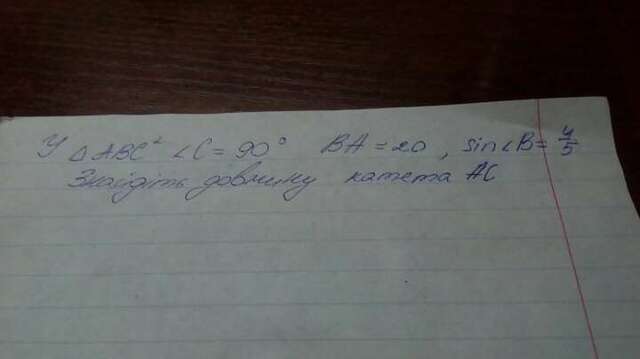 У △ABC² ∠C = 90° BA = 20, sin∠B = 4/5
Знайдіть довжину катета AC